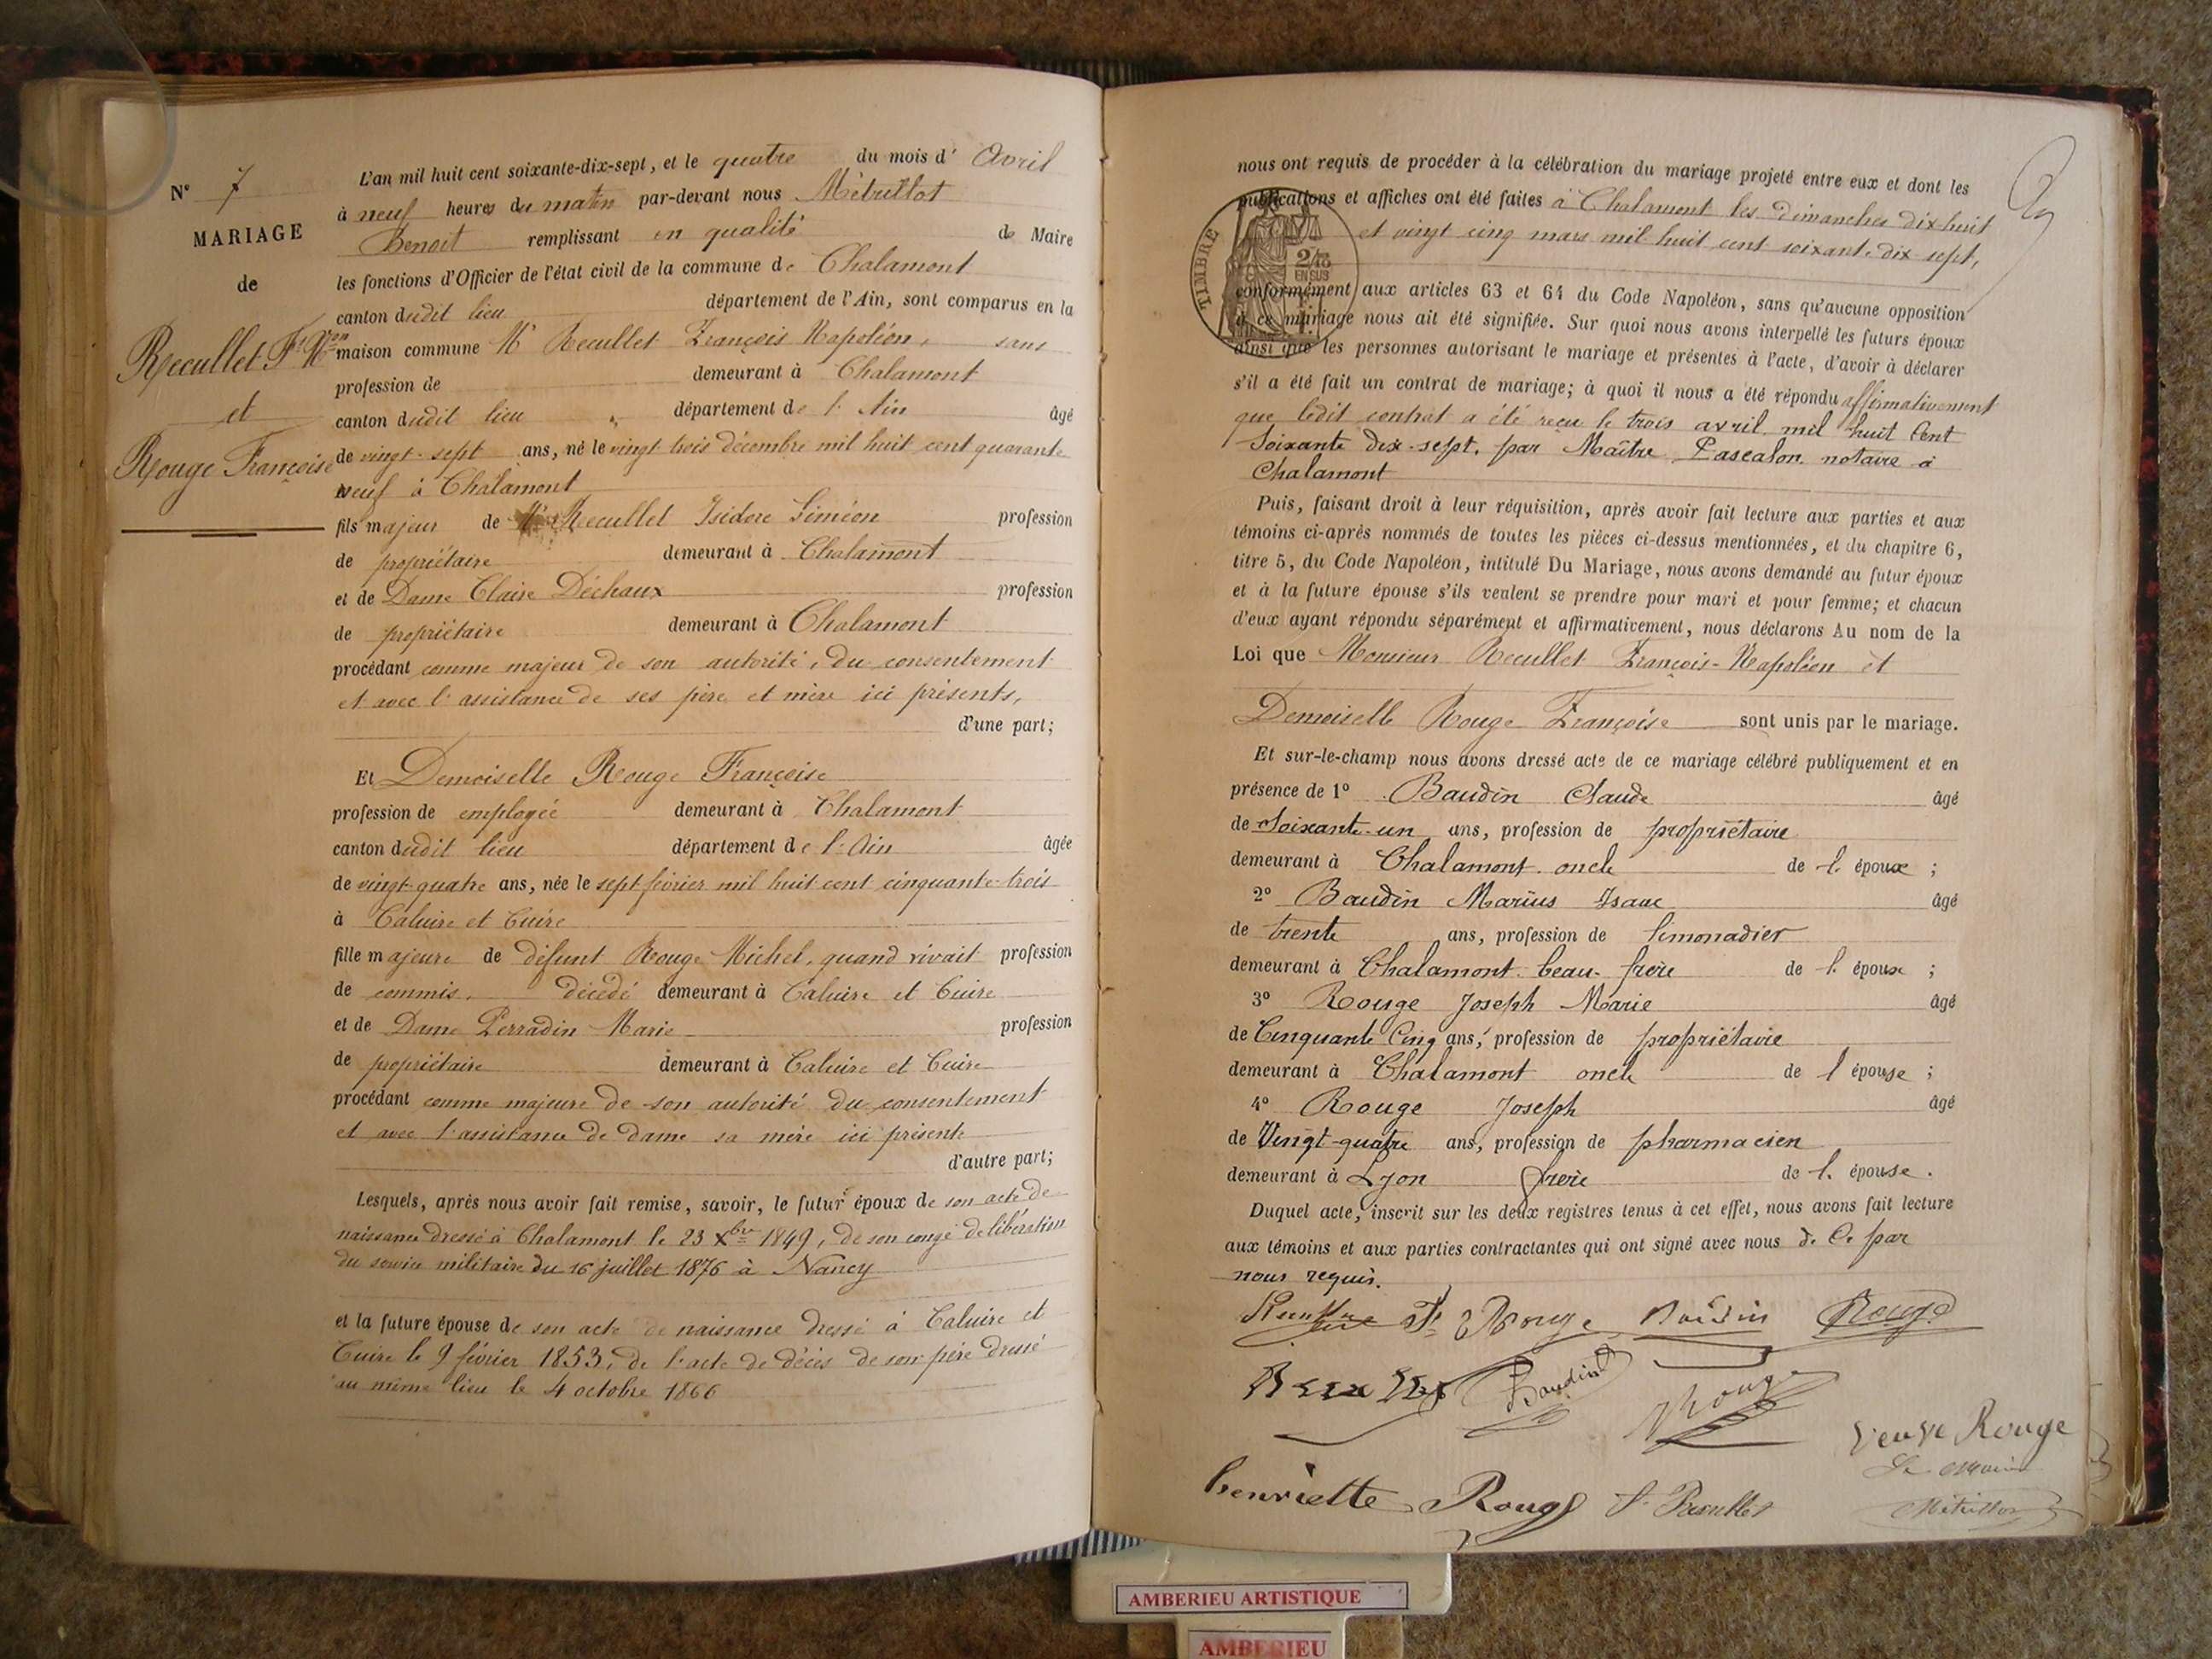 N° 7
MARIAGE
de
Recullet Fs Non
et
Rouge Françoise
L'an mil huit cent soixante-dix-sept, et le quatre du mois d' Avril
à neuf heures du matin par-devant nous Métrillot
Benoit remplissant en qualité de Maire
les fonctions d'Officier de l'état civil de la commune de Chalamont
canton dudit lieu département de l'Ain, sont comparus en la
maison commune Mr Recullet François Napoléon, sans
profession de demeurant à Chalamont
canton dudit lieu département de l'Ain âgé
de vingt-sept ans, né le vingt trois décembre mil huit cent quarante
neuf à Chalamont
fils majeur de Mr Recullet Isidore Siméon profession
de propriétaire demeurant à Chalamont
et de Dame Claire Déchaux profession
de propriétaire demeurant à Chalamont
procédant comme majeur de son autorité, du consentement
et avec l'assistance de ses père et mère ici présents,
d'une part;
Et Demoiselle Rouge Françoise
profession de employée demeurant à Chalamont
canton dudit lieu département de l'Ain âgée
de vingt-quatre ans, née le sept février mil huit cent cinquante-trois
à Caluire et Cuire
fille majeure de défunt Rouge Michel, quand vivait profession
de commis, décédé demeurant à Caluire et Cuire
et de Dame Perradin Marie profession
de propriétaire demeurant à Caluire et Cuire
procédant comme majeure de son autorité du consentement
et avec l'assistance de dame sa mère ici présente
d'autre part;
Lesquels, après nous avoir fait remise, savoir, le futur époux de son acte de
naissance dressé à Chalamont le 23 Xbre 1849, de son congé de libération
du service militaire du 16 juillet 1876 à Nancy
et la future épouse de son acte de naissance dressé à Caluire et
Cuire le 9 février 1853, de l'acte de décès de son père dressé
au même lieu le 4 octobre 1866
nous ont requis de procéder à la célébration du mariage projeté entre eux et dont les
publications et affiches ont été faites à Chalamont les dimanches dix huit
et vingt cinq mars mil huit cent soixante-dix sept,
TIMBRE
2/10
EN SUS
conformément aux articles 63 et 64 du Code Napoléon, sans qu'aucune opposition
à ce mariage nous ait été signifiée. Sur quoi nous avons interpellé les futurs époux
ainsi que les personnes autorisant le mariage et présentes à l'acte, d'avoir à déclarer
s'il a été fait un contrat de mariage; à quoi il nous a été répondu affirmativement
que ledit contrat a été reçu le trois avril mil huit Cent
Soixante dix-sept, par Maître Pascalon notaire à
Chalamont
Puis, faisant droit à leur réquisition, après avoir fait lecture aux parties et aux
témoins ci-après nommés de toutes les pièces ci-dessus mentionnées, et du chapitre 6,
titre 5, du Code Napoléon, intitulé Du Mariage, nous avons demandé au futur époux
et à la future épouse s'ils veulent se prendre pour mari et pour femme; et chacun
d'eux ayant répondu séparément et affirmativement, nous déclarons Au nom de la
Loi que Monsieur Recullet François-Napoléon et
Demoiselle Rouge Françoise sont unis par le mariage.
Et sur-le-champ nous avons dressé acte de ce mariage célébré publiquement et en
présence de 1° Baudin Claude âgé
de Soixante-un ans, profession de propriétaire
demeurant à Chalamont oncle de l'époux ;
2° Baudin Marius Isaac âgé
de trente ans, profession de limonadier
demeurant à Chalamont beau-frère de l'époux ;
3° Rouge Joseph Marie âgé
de Cinquante Cinq ans, profession de propriétaire
demeurant à Chalamont oncle de l'épouse ;
4° Rouge Joseph âgé
de Vingt-quatre ans, profession de pharmacien
demeurant à Lyon frère de l'épouse.
Duquel acte, inscrit sur les deux registres tenus à cet effet, nous avons fait lecture
aux témoins et aux parties contractantes qui ont signé avec nous de Ce par
nous requis.
Fs Rouge Baudin Rouge
Baudin Rouge
Veuve Rouge
Le Maire
henriette Rouge Recullet Métrillot
AMBERIEU ARTISTIQUE
AMBERIEU